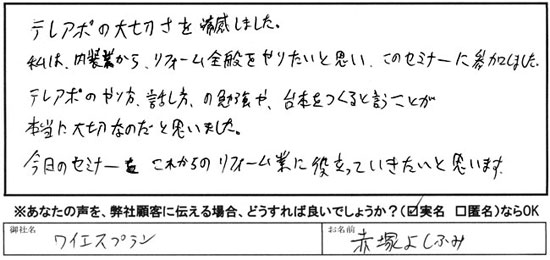 テレアポの大切さを痛感しました。
私は、内装業から、リフォーム全般をやりたいと思い、このセミナーに参加しました。
テレアポのやり方、話し方、の勉強や、台本をつくると言うことが
本当に大切なのだと思いました。
今日のセミナーを これからのリフォーム業に役立っていきたいと思います。
※あなたの声を、弊社顧客に伝える場合、どうすれば良いでしょうか?(☑実名 □匿名)ならOK
御社名 ワイエスプラン お名前 赤塚よしふみ